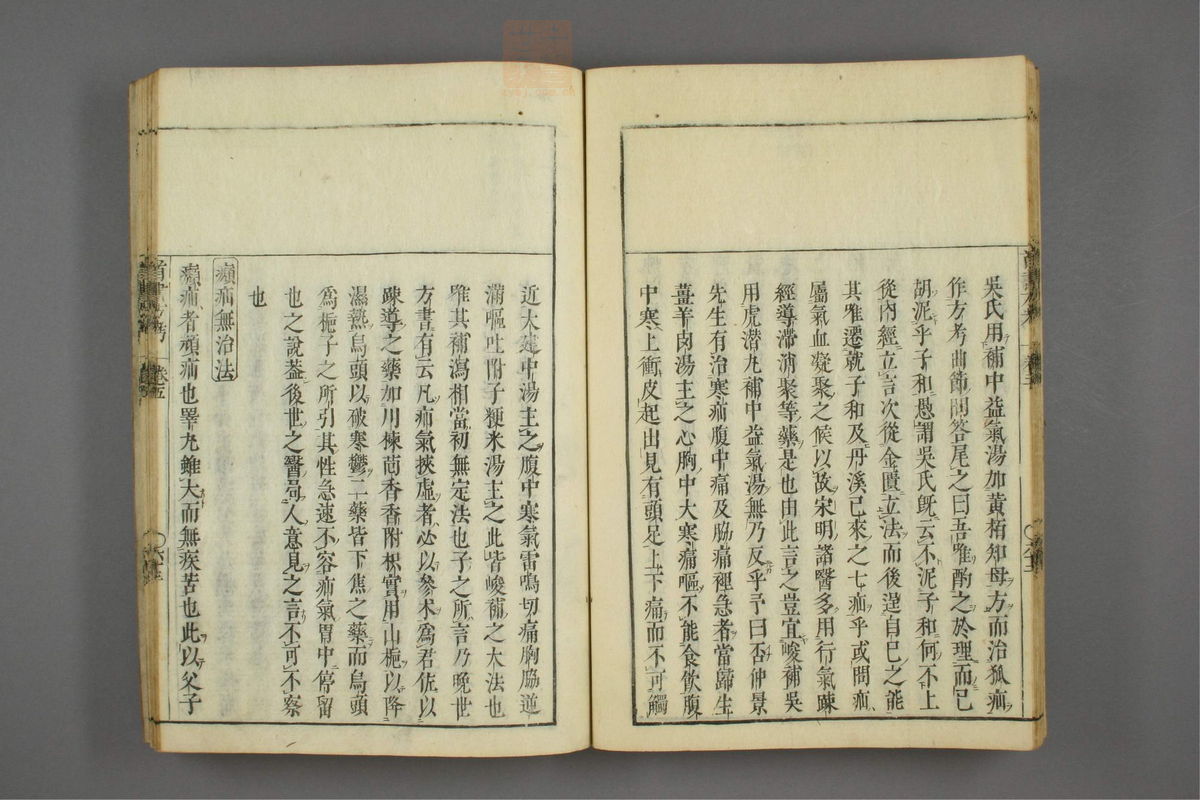 吳氏用補中益氣湯加黃栢知母方而治狐疝
作方考曲節問答尾之曰吾唯酌之於理而已
胡泥乎子和愚謂吳氏既云不泥子和何不上
從內經立言次從金匱立法而後逞自己之能
其唯遷就子和及丹溪已來之七疝乎或問疝
屬氣血凝聚之候以故宋明諸醫多用行氣踈
經導滯消聚等藥是也由此言之豈宜峻補吳
用虎潛丸補中益氣湯無乃反乎予曰否仲景
先生有治寒疝腹中痛及脇痛裡急者當歸生
薑羊肉湯主之心胸中大寒痛嘔不能食飲腹
中寒上衝皮起出見有頭足上下痛而不可觸
近大建中湯主之腹中寒氣雷鳴切痛胸脇逆
滿嘔吐附子粳米湯主之此皆峻補之大法也
唯其補瀉相當初無定法也子之所言乃晚世
方書有云凡疝氣挾虛者必以參朮爲君佐以
踈導之藥加川楝茴香香附枳實用山梔以降
濕熱烏頭以破寒鬱二藥皆下焦之藥而烏頭
爲梔子之所引其性急速不容疝氣胃中停留
也之說葢後世之醫咼人意見之言不可不察
也
㿗疝無治法
㿗疝者頑疝也睪丸雖大而無疾苦也此以父子
卷五